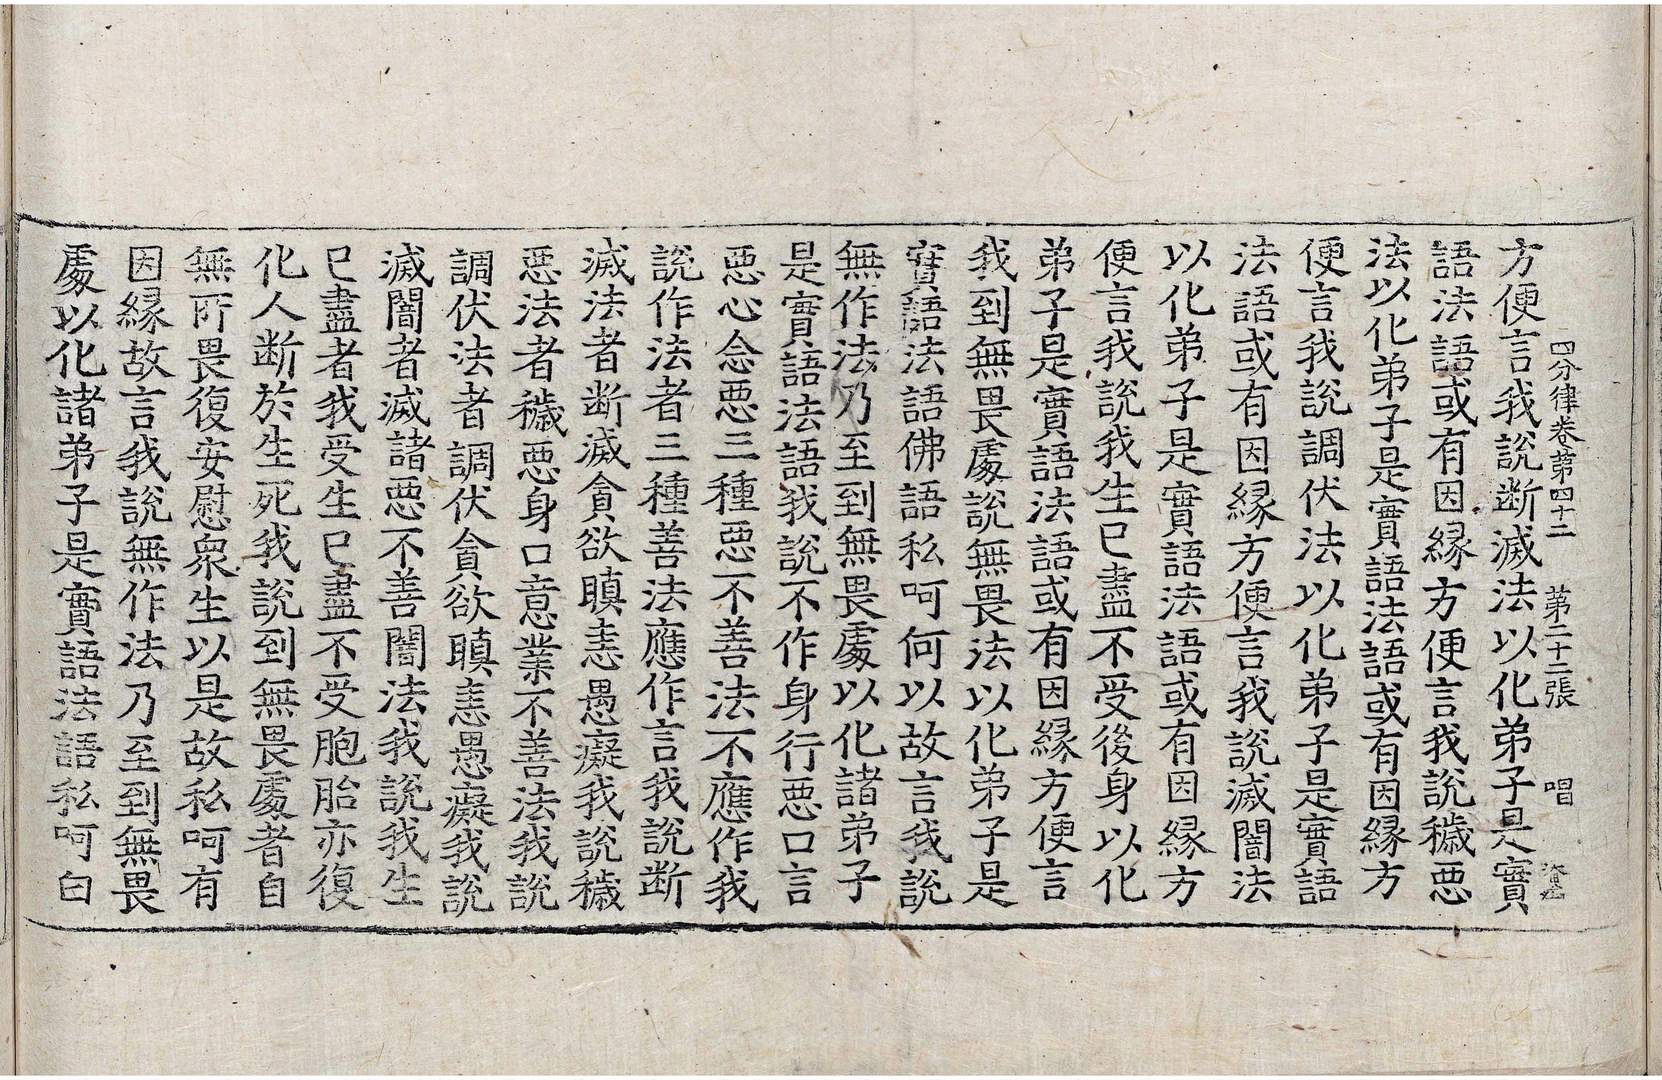 四分律卷第四十二 第二十二張 唱
方便言我說斷滅法以化弟子是實
語法語或有因緣方便言我說穢惡
法以化弟子是實語法語或有因緣方
便言我說調伏法以化弟子是實語
法語或有因緣方便言我說滅闇法
以化弟子是實語法語或有因緣方
便言我說我生已盡不受後身以化
弟子是實語法語或有因緣方便言
我到無畏處說無畏法以化弟子是
實語法語佛語私呵何以故言我說
無作法乃至到無畏處以化諸弟子
是實語法語我說不作身行惡口言
惡心念惡三種惡不善法不應作我
說作法者三種善法應作言我說斷
滅法者斷滅貪欲瞋恚愚癡我說穢
惡法者穢惡身口意業不善法我說
調伏法者調伏貪欲瞋恚愚癡我說
滅闇者滅諸惡不善闇法我說我生
已盡者我受生已盡不受胞胎亦復
化人斷於生死我說到無畏處者自
無所畏復安慰衆生以是故私呵有
因緣故言我說無作法乃至到無畏
處以化諸弟子是實語法語私呵白